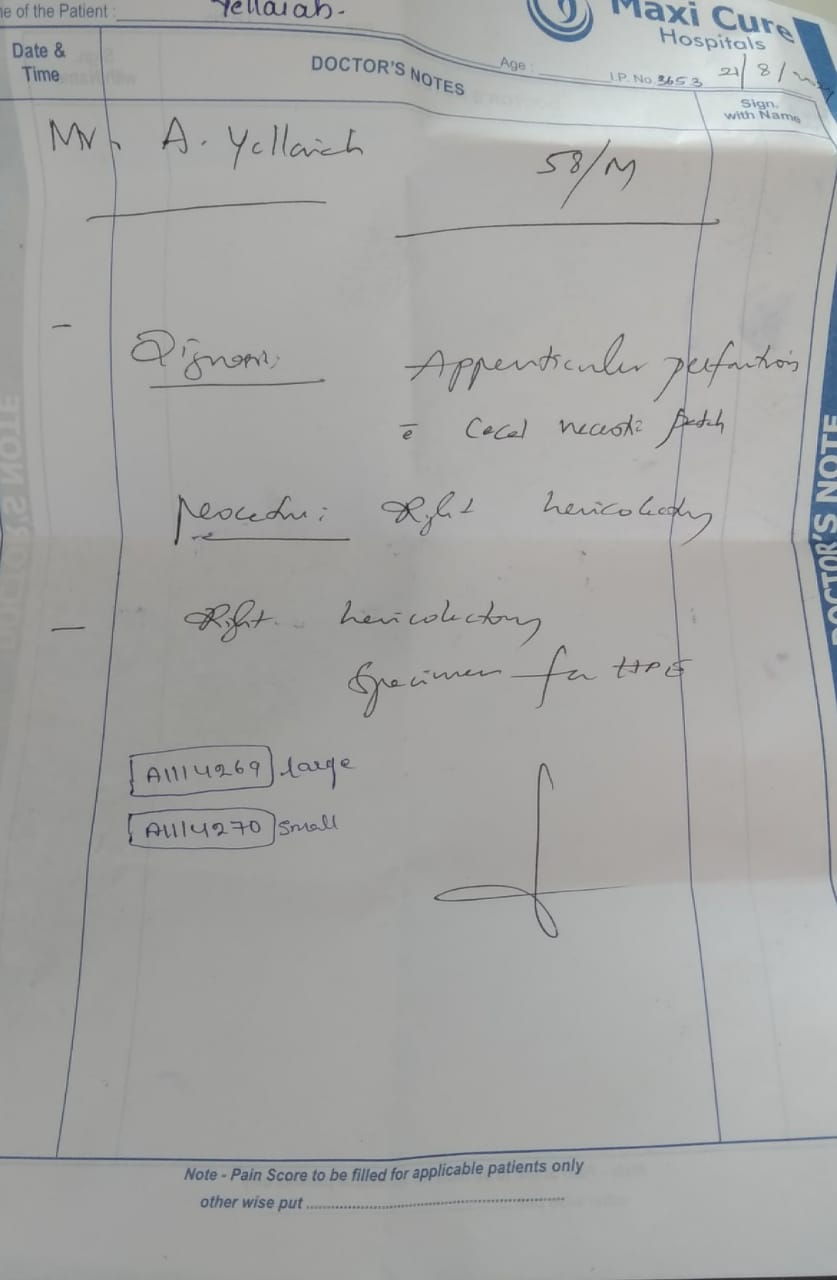 ne of the Patient : Yellaiah-
Maxi Cure
Hospitals
Date &
Time
DOCTOR'S NOTES
Age :
I.P. No. 3653
21/8/
Sign.
with Name
Mr. A. Yellaiah
58/M
- Diagnosis: Appendicular perforation
c̄ Cecal necrotic patch
Procedure: Right hemicolectomy
- Right hemicolectomy
Specimen for HPE
A1114269 large
A1114270 small
DOCTOR'S NOTE
Note - Pain Score to be filled for applicable patients only
other wise put